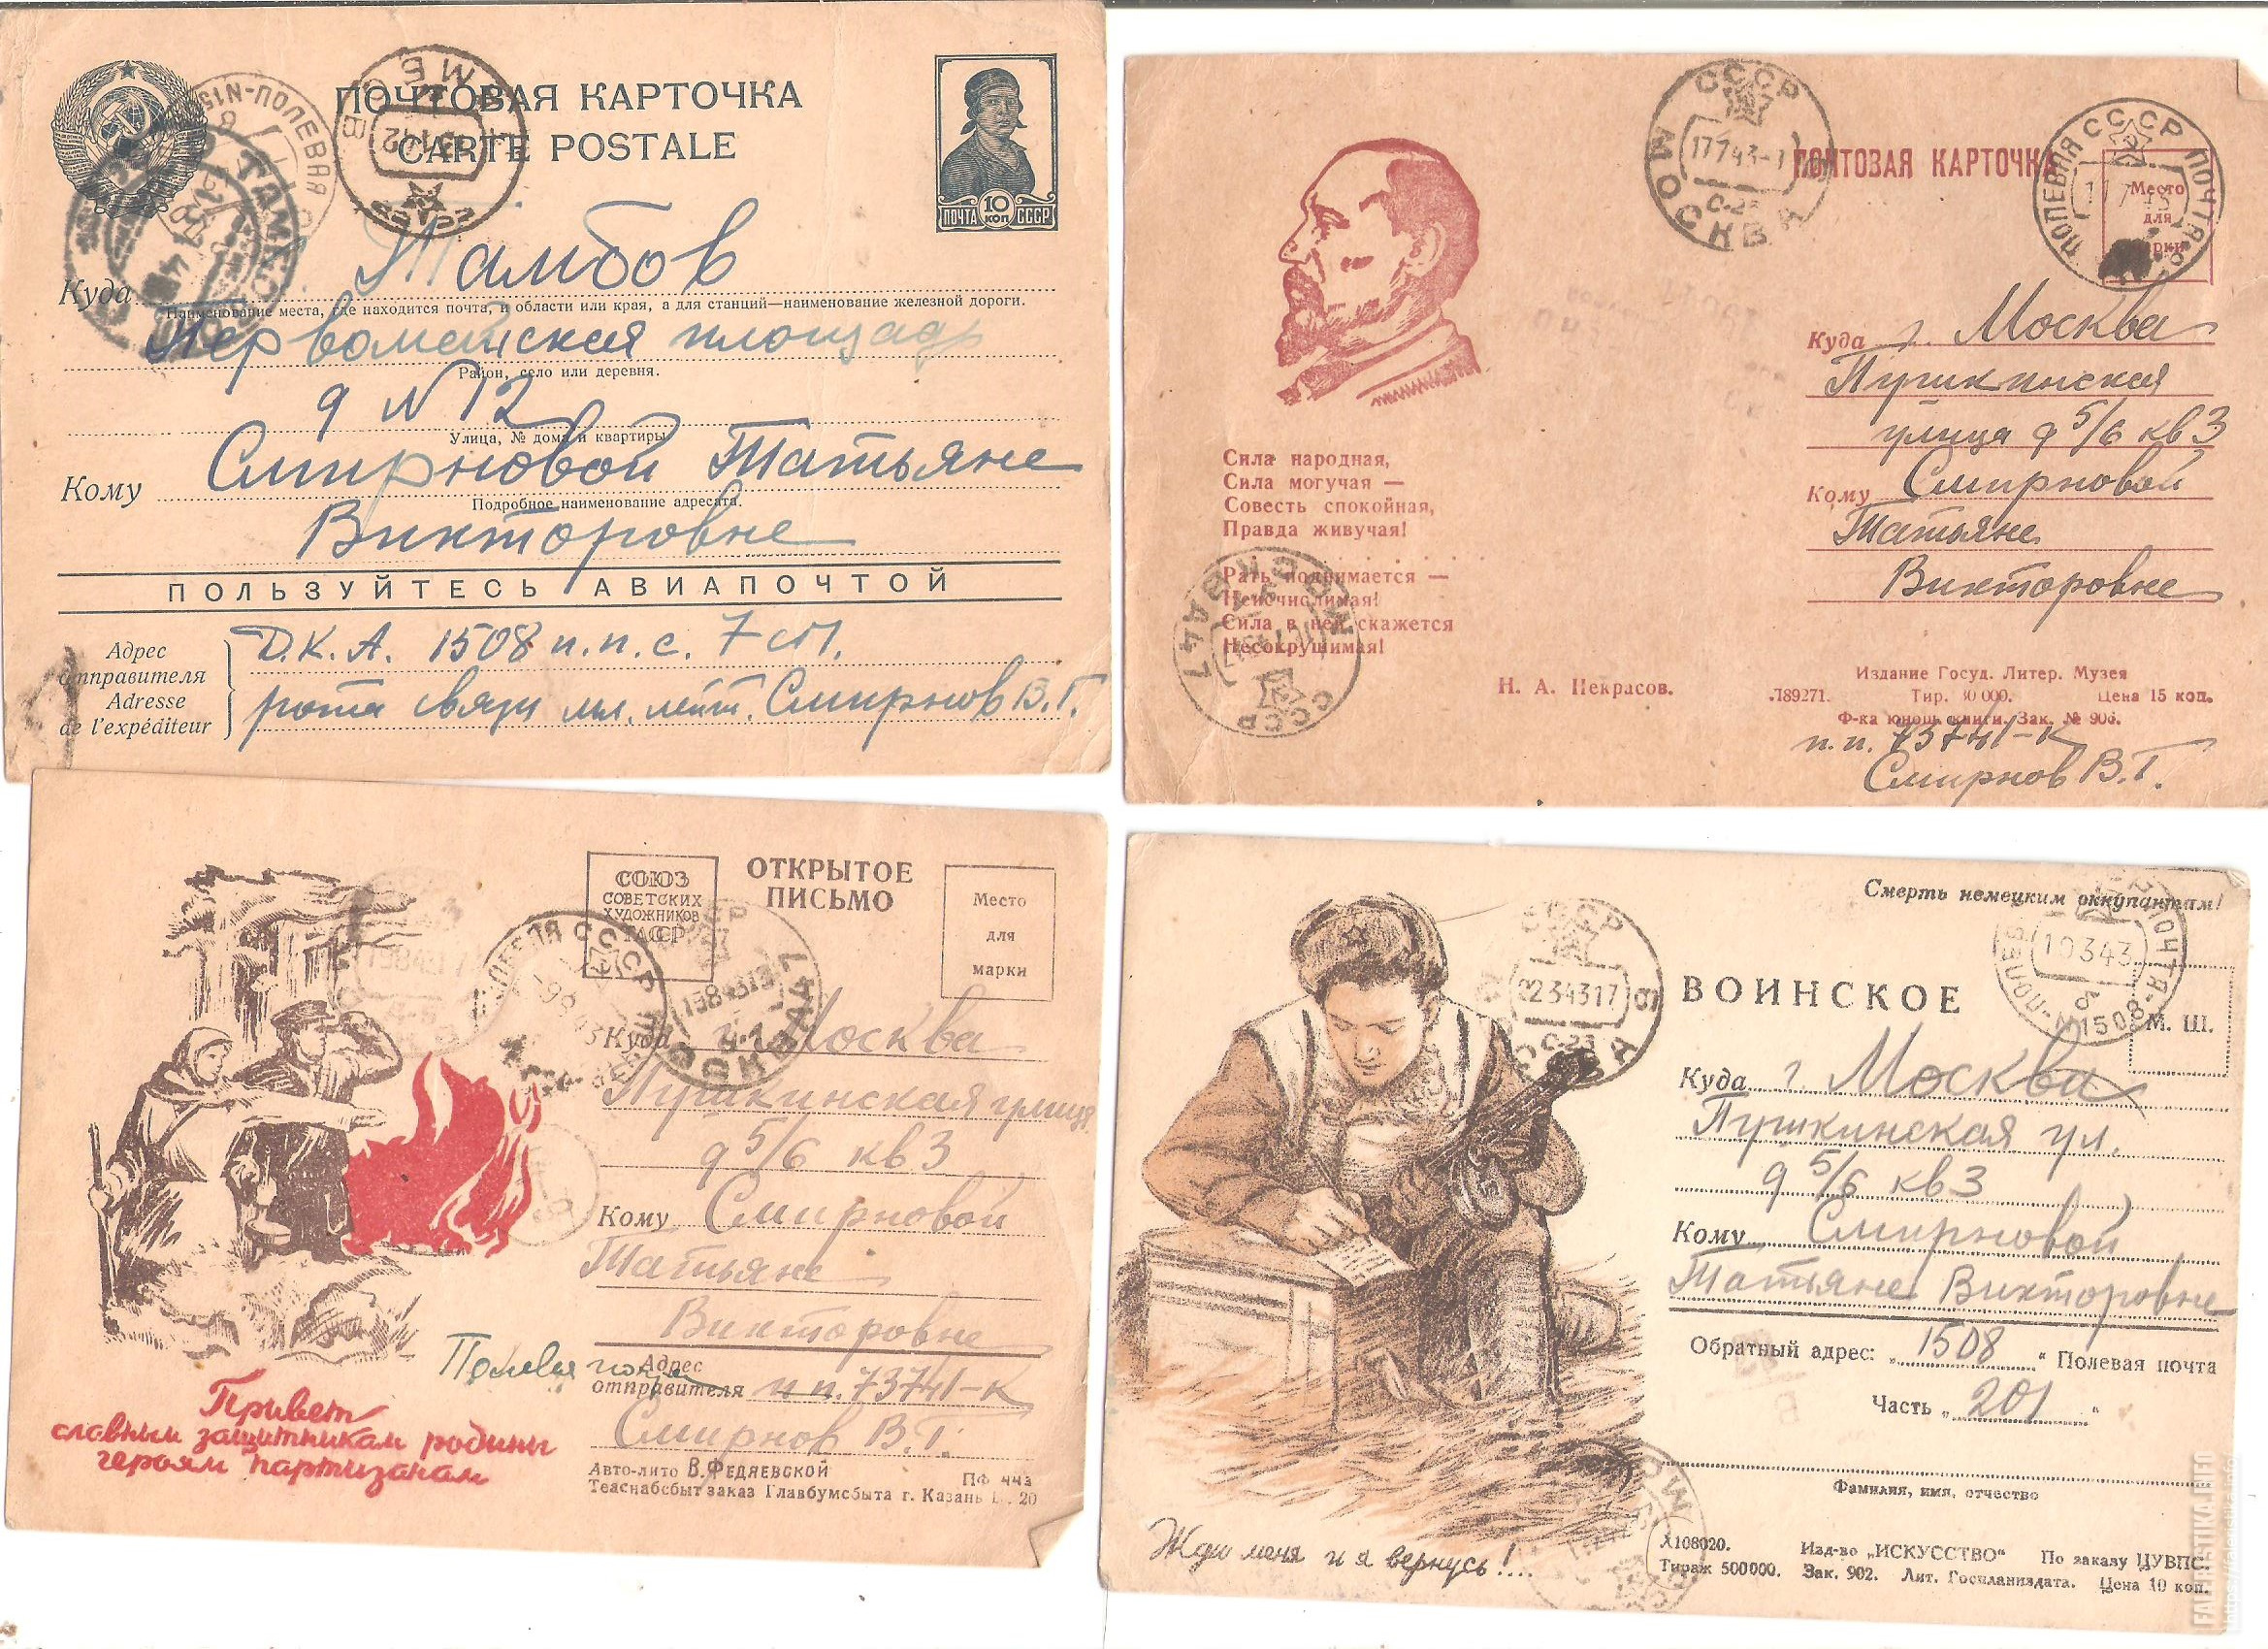 ПОЧТОВАЯ КАРТОЧКА
CARTE POSTALE
ПОЧТА 10 КОП СССР
Куда Тамбов
Наименование места, где находится почта, и области или края, а для станций—наименование железной дороги.
Первомайская площадь
Район, село или деревня.
д N 12
Улица, № дома и квартиры
Кому Смирновой Татьяне
Подробное наименование адресата.
Викторовне
ПОЛЬЗУЙТЕСЬ АВИАПОЧТОЙ
Адрес отправителя
Adresse de l'expéditeur
Д.К.А. 1508 п.п.с. 7
рота связи мл. лейт. Смирнов В.Г.
СССР
17743-
МОСКВА
ПОЧТОВАЯ КАРТОЧКА
ПОЛЕВАЯ ПОЧТА
СССР
Место
для
Куда г. Москва
Пушкинская
улица д 5/6 кв 3
Кому Смирновой
Татьяне
Викторовне
Сила народная,
Сила могучая —
Совесть спокойная,
Правда живучая!
Рать поднимается —
Неисчислимая!
Сила в ней скажется
Несокрушимая!
Н. А. Некрасов.
Издание Госуд. Литер. Музея
Л89271. Тир. 30 000. Цена 15 коп.
Ф-ка юнош. книги. Зак. № 906.
п.п. 73741-К
Смирнов В.Г.
СОЮЗ
СОВЕТСКИХ
ХУДОЖНИКОВ
ТАССР
ОТКРЫТОЕ
ПИСЬМО
Место
для
марки
Куда г. Москва
Пушкинская улица
д 5/6 кв 3
Кому Смирновой
Татьяне
Викторовне
Полевая почта
Адрес
отправителя п п. 73741-К
Смирнов В.Г.
Привет
славным защитникам родины
героям партизанам
Авто-лито В. ФЕДЯЕВСКОЙ ПФ 443
Теаснабсбыт заказ Главбумсбыта г. Казань 20
Смерть немецким оккупантам!
ВОИНСКОЕ
СССР
МОСКВА
С-23
10343
N1508
М. Ш.
Куда г. Москва
Пушкинская ул.
д 5/6 кв 3
Кому Смирновой
Татьяне Викторовне
Обратный адрес: „1508“ Полевая почта
Часть „201“
Фамилия, имя, отчество
Жди меня и я вернусь!...
Х108020. Изд-во „ИСКУССТВО“ По заказу ЦУВПС.
Тираж 500000. Зак. 902. Лит. Госпланиздата. Цена 10 коп.
FALERISTIKA.INFO